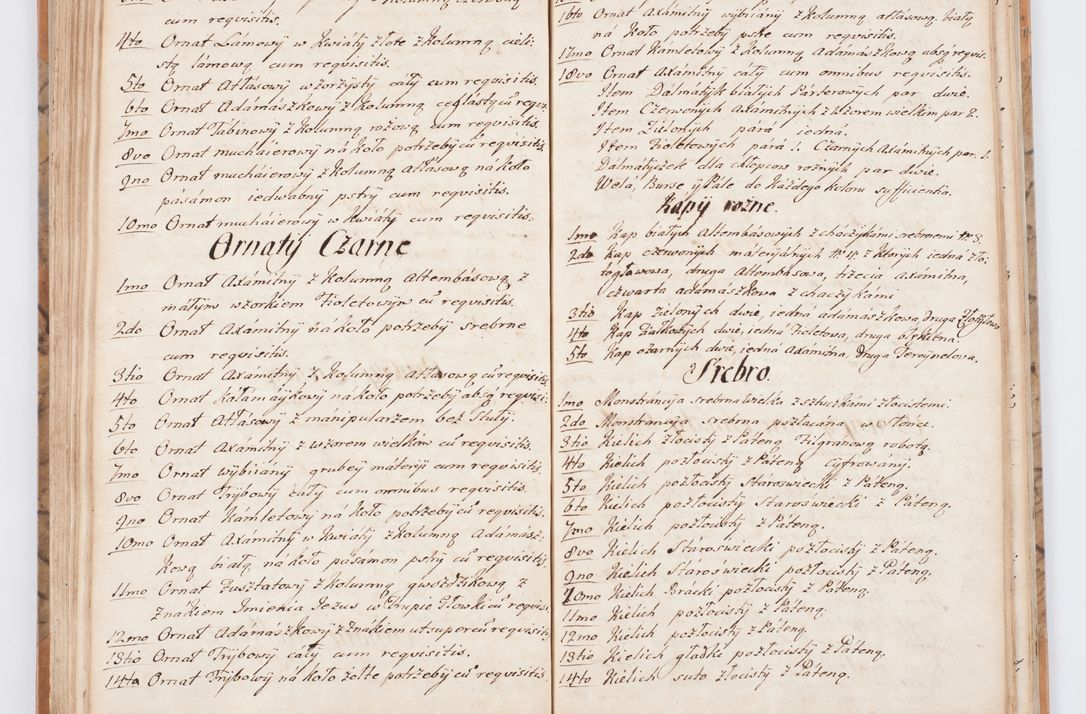 cum reqvisitis.
4to Ornat Lámowy w Kwiáty złote z Kolumną cieli-
stą lámową cum reqvisitis.
5to Ornat Atłasowy wzorzysty cáły cum reqvisitis.
6to Ornat Adamaszkowy z Kolumną ceglastą cū reqvis.
7mo Ornat Tabinowy z Kolumną rożową cum reqvisitis.
8vo Ornat muchaierowy ná koło potrzeby cū reqvisitis
9no Ornat muchaierowy z Kolumną atłasową ná koło
pásámon iedwabny pstry cum reqvisitis.
10mo Ornat muchaierowy w Kwiáty cum reqvisitis.
Ornaty Czarne
1mo Ornat Axámitny z Kolumną Altembásową z
máłym wzorkiem Fioletowym cū reqvisitis.
2do Ornat Axámitny ná koło potrzeby srebrne
cum reqvisitis.
3tio Ornat Axámitny z Kolumną Atłasową cū reqvisitis
4to Ornat Kałamaykowy ná koło potrzeby absq reqvisi:
5to Ornat Atłasowy z manipularzem bez Stuły.
6to Ornat Axámitny z wzorem wielkim cū reqvisitis.
7mo Ornat wybiiány grubey máteryi cum reqvisitis.
8vo Ornat Trybowy cáły cum omnibus reqvisitis.
9no Ornat Kámletowy ná koło potrzeby cū reqvisitis.
10mo Ornat Axámitny w Kwiáty z Kolumną Adámász-
kową białą ná koło pásamon pstry cū reqvisitis.
11mo Ornat Pusztatowy z Kolumną gwoździkową z
Znákiem Imienia Jezus w Trupie Głowki cū reqvis.
12mo Ornat Adámászkowy z Znákiem ut supercū reqvisitis
13tio Ornat Trybowy cáły cum reqvisitis.
14to Ornat Trybowy ná koło żółte potrzeby cū reqvisitis.
16to Ornat Axámitny wybiiány z Kolumną atłasową białą
ná koło potrzeby pske cum reqvisitis.
17mo Ornat Kámletowy z Kolumną Adámászkową absq reqvis.
18vo Ornat Axámitny cáły cum omnibus reqvisitis.
Item Dalmátyk białych Parterowych par dwie.
Item Czerwonych Axámitnych z wzorem wielkim par 2.
Item Zielonych pára iedna.
Item Fioletowych pará 1. Czarnych Axámitnych par. 1.
Dálmátyczek dla chłopcow rożnych par dwie.
Wela, Burse y Pále do Káżdego koloru sufficientia.
Kapy rożne.
1mo Kap białych Altembásowych z chaczykámi srebrnemi Nr 3.
2do Kap czerwonych materyálnych Nr 4. z Ktorych iedná zło-
togłowowa, druga Altembásowa, trzecia axámitna,
czwarta adámászkowa z chaczykámi
3tio Kap zielonych dwie, iedná adámaszkowa, Druga Złotogłowo
4to Kap Fiałkowych dwie, iedná Fioletowa, druga błękitna
5to Kap czarnych dwie, iedná Axámitna, Druga Terciopelowa.
Srebro.
1mo Monstrancyia srebrna wielka z sztuczkámi złocistemi.
2do Monstrancyia srebrna pozłacana w słońce.
3tio Kielich złocisty z Páteną Filigranową robotą.
4to Kielich pozłocisty z Páteną cyfrowány.
5to Kielich pozłocisty Staroswiecki z Páteną.
6to Kielich pozłocisty Staroswiecki z Páteną.
7mo Kielich pozłocisty z Páteną.
8vo Kielich Stároświecki pozłocisty z Páteną.
9no Kielich Staroświecki pozłocisty z Páteną.
10mo Kielich Bracki pozłocisty z Páteną.
11mo Kielich pozłocisty z Páteną.
12mo Kielich pozłocisty z Páteną.
13tio Kielich głádki pozłocisty z Páteną.
14to Kielich suto złocisty z Páteną.